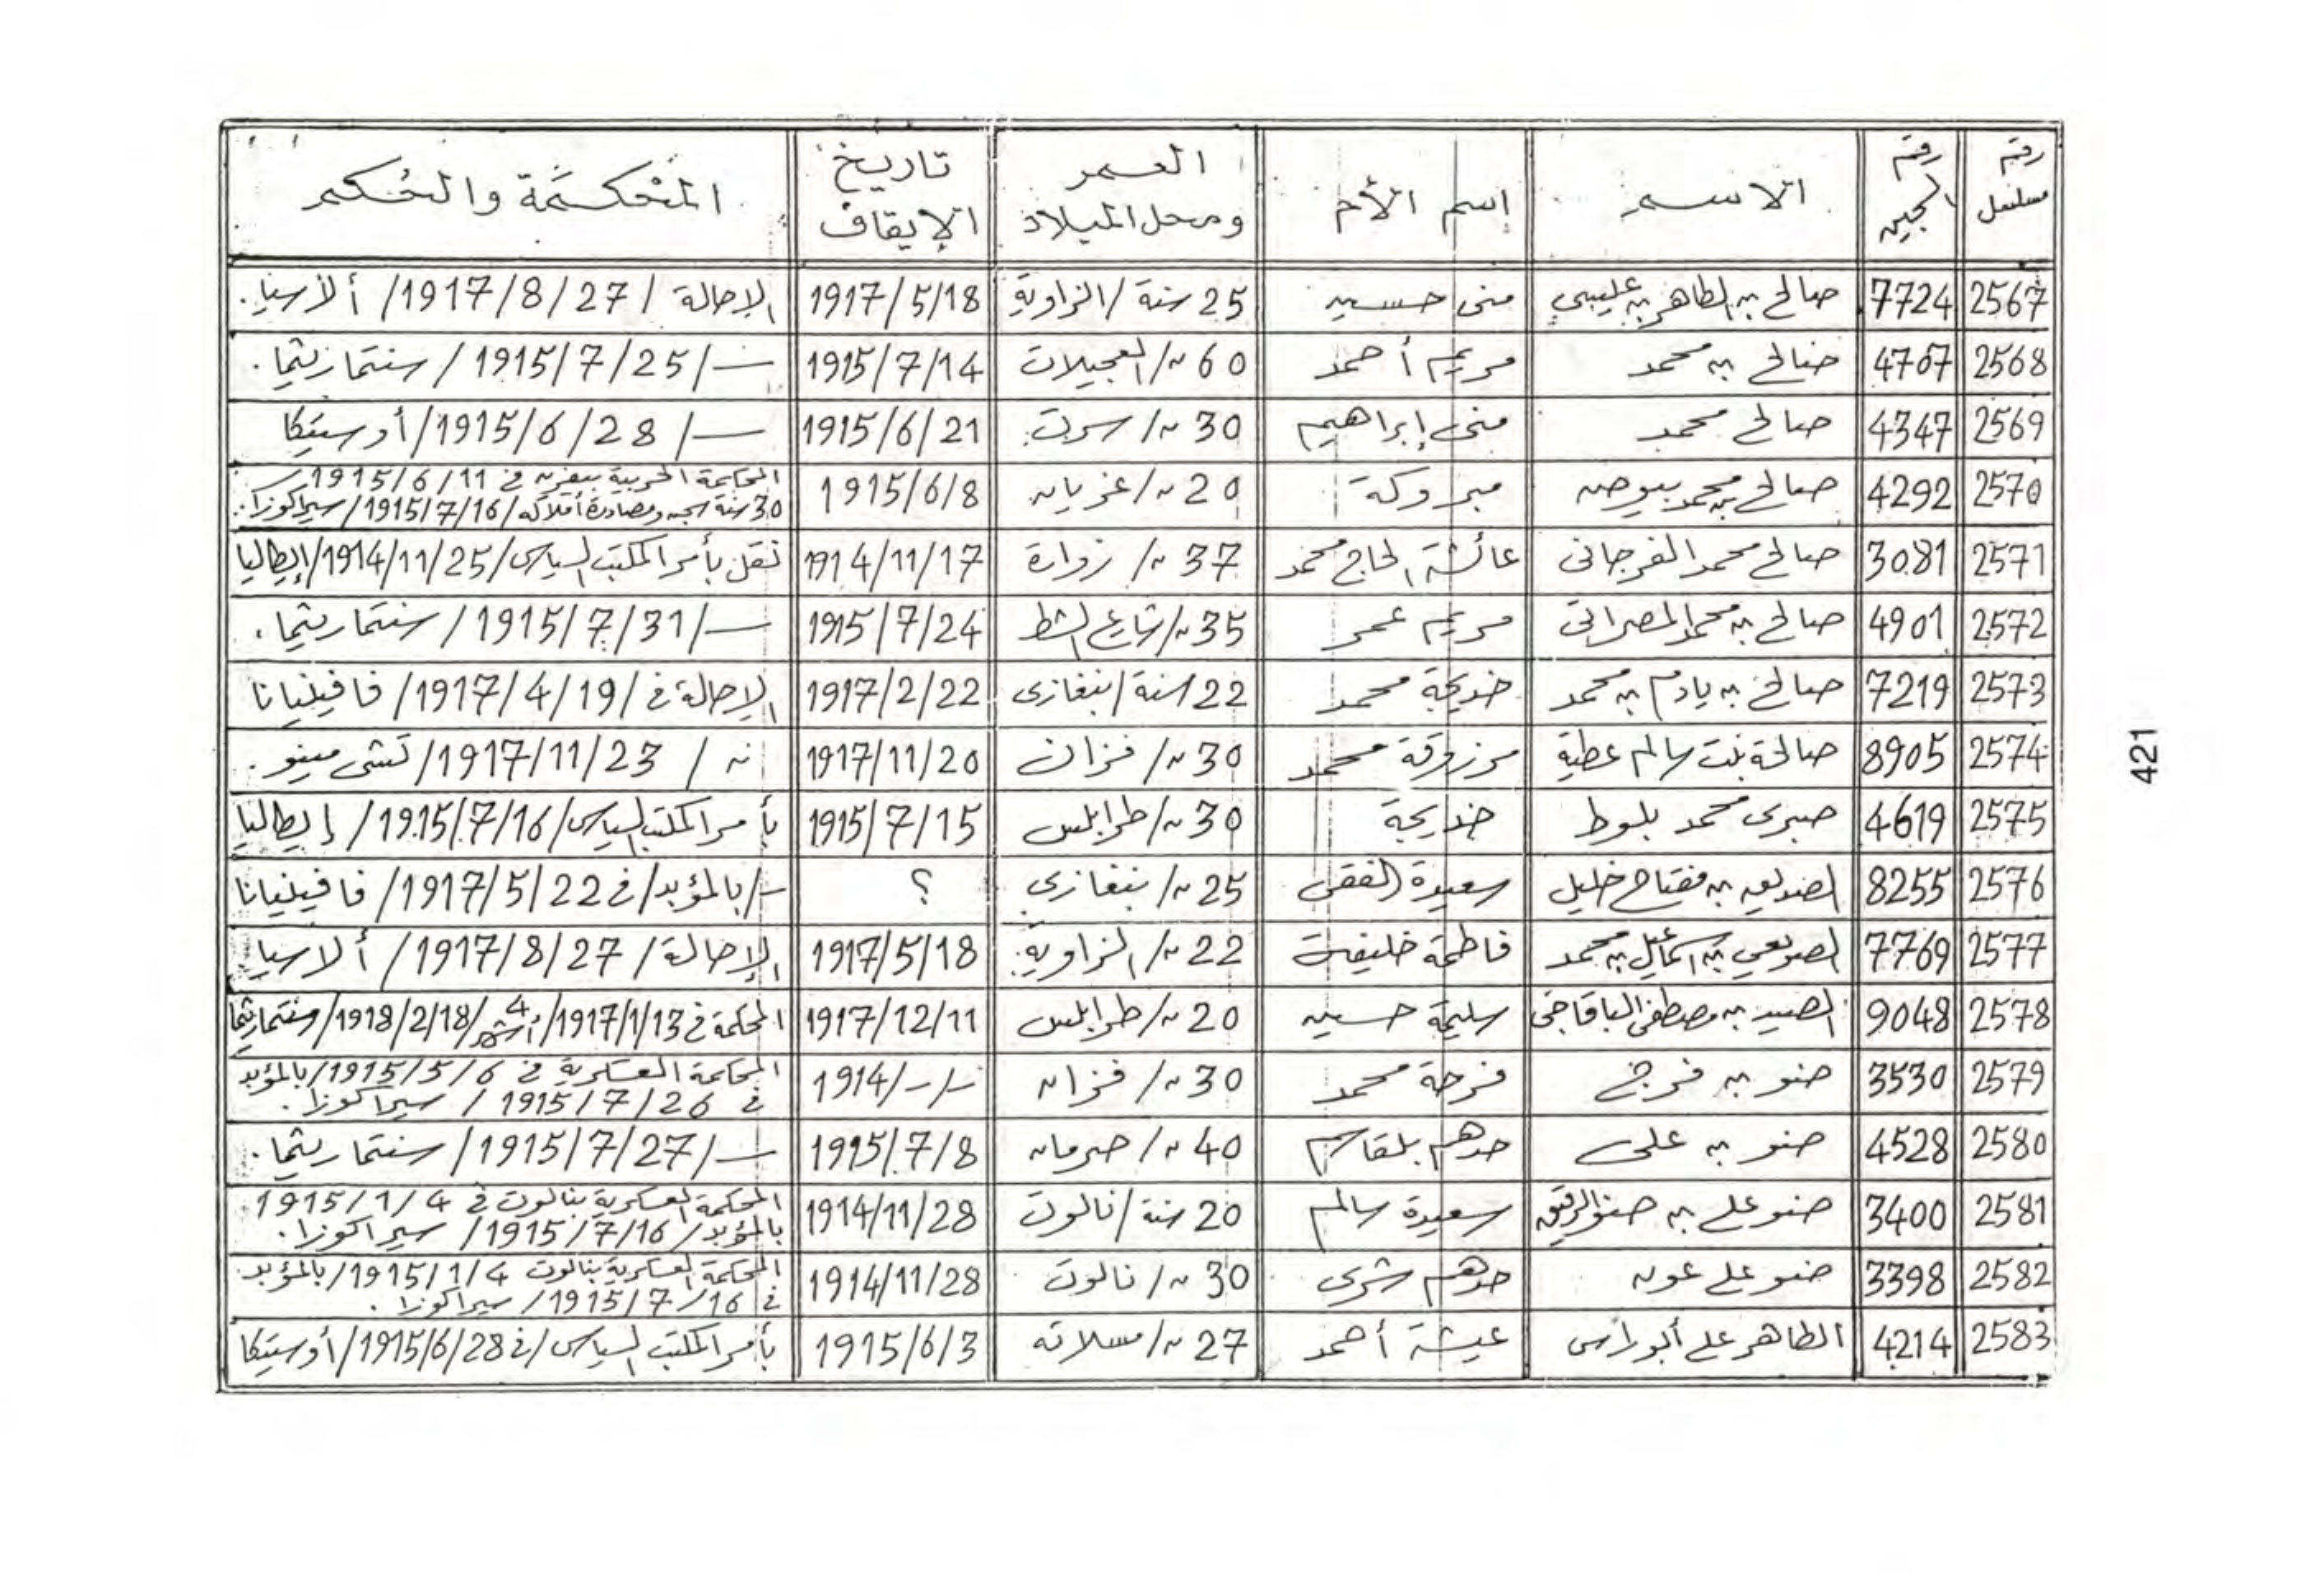 رقم مسلسل | رقم السجين | الاسم | إسم الأم | العمر ومحل الميلاد | تاريخ الإيقاف | المحكمة والحكم
2567 | 7724 | صالح بن الطاهر بن عليبي | منى حسين | 25 سنة / الزاوية | 1917/5/18 | الإحالة / 1917/8/27 / ألأسيا.
2568 | 4707 | صالح بن محمد | مريم أحمد | 60 // / العجيلات | 1915/7/14 | ـــ / 1915/7/25 / سنتماريثما.
2569 | 4347 | صالح محمد | منى إبراهيم | 30 // / سرت | 1915/6/21 | ـــ / 1915/6/28 / أوستيكا
2570 | 4292 | صالح بن محمد | مبروكة | 20 // / غريان | 1915/6/8 | المحكمة الحربية بيفرن في 1915/6/11 ـ
30 سنة سجن ومصادرة أملاكه / 1915/7/16 / سيراكوزا.
2571 | 3081 | صالح محمد الفرجاني | عائشة الحاج محمد | 37 // / زوارة | 1914/11/17 | نقل بأمر المكتب السياسى / 1914/11/25 / إيطاليا
2572 | 4901 | صالح بن محمد المصراتى | مريم عمر | 35 // / شارع الشط | 1915/7/24 | ـــ / 1915/7/31 / سنتماريثما.
2573 | 7219 | صالح بن يادم بن محمد | خديجة محمد | 22 سنة / بنغازى | 1917/2/22 | الإحالة في / 1917/4/19 / فافينيانا
2574 | 8905 | صالحة بنت سالم عطية | مرزوقة محمد | 30 // / فزان | 1917/11/20 | // / 1917/11/23 / تشى مينو.
2575 | 4619 | صبرى محمد بلوط | خديجة | 30 // / طرابلس | 1915/7/15 | بأمر المكتب السياسى / 1915/7/16 / إيطاليا
2576 | 8255 | بن مفتاح خليل | سعيدة الفقى | 25 // / بنغازى | ؟ | ـ / بالمؤبد / في 1917/5/22 / فافينيانا
2577 | 7769 | الصويعي بن اسماعيل بن محمد | فاطمة خليفة | 22 // / الزاوية | 1917/5/18 | الإحالة / 1917/8/27 / ألاسيا.
2578 | 9048 | الصيد بن مصطفى الباقاضى | سليمة حسين | 20 // / طرابلس | 1917/12/11 | المحكمة في 1917/1/13 / 4 أشهر / 1918/2/18 / سنتماريثما
2579 | 3530 | ضو بن فرج | فرحة محمد | 30 // / فزان | 1914/-/- | المحكمة العسكرية في 1915/5/6 / بالمؤبد
في 1915/7/26 / سيراكوزا.
2580 | 4528 | ضو بن على | حدهم بلقاسم | 40 // / صرمان | 1915/7/8 | ـــ / 1915/7/27 / سنتماريثما.
2581 | 3400 | ضو على بن ضو | سعيدة سالم | 20 سنة / نالوت | 1914/11/28 | المحكمة العسكرية بنالوت في 1915/1/4
بالمؤبد / 1915/7/16 / سيراكوزا.
2582 | 3398 | ضو على عون | حدهم | 30 // / نالوت | 1914/11/28 | المحكمة العسكرية بنالوت 1915/1/4 / بالمؤبد.
في 1915/7/16 / سيراكوزا.
2583 | 4214 | الطاهر على أبو راس | عيشة أحمد | 27 // / مسلاته | 1915/6/3 | بأمر المكتب السياسى / في 1915/6/28 / أوستيكا
421